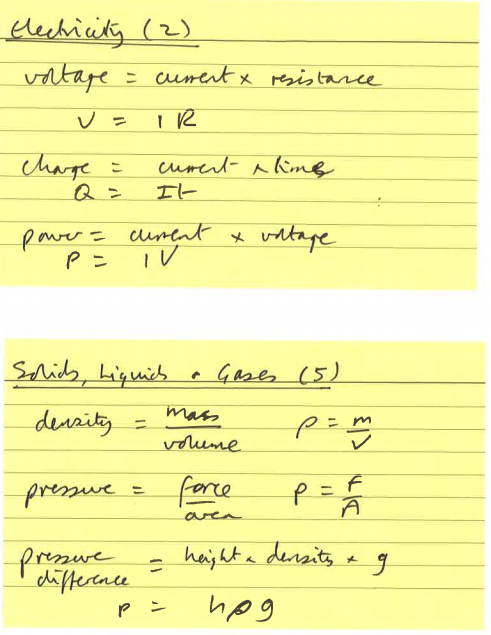 Electricity (2)
voltage = current × resistance
V = IR
charge = current × time
Q = It
power = current × voltage
P = IV
Solids, Liquids & Gases (5)
density = mass / volume ρ = m / V
pressure = force / area p = F / A
pressure difference = height × density × g
p = hρg